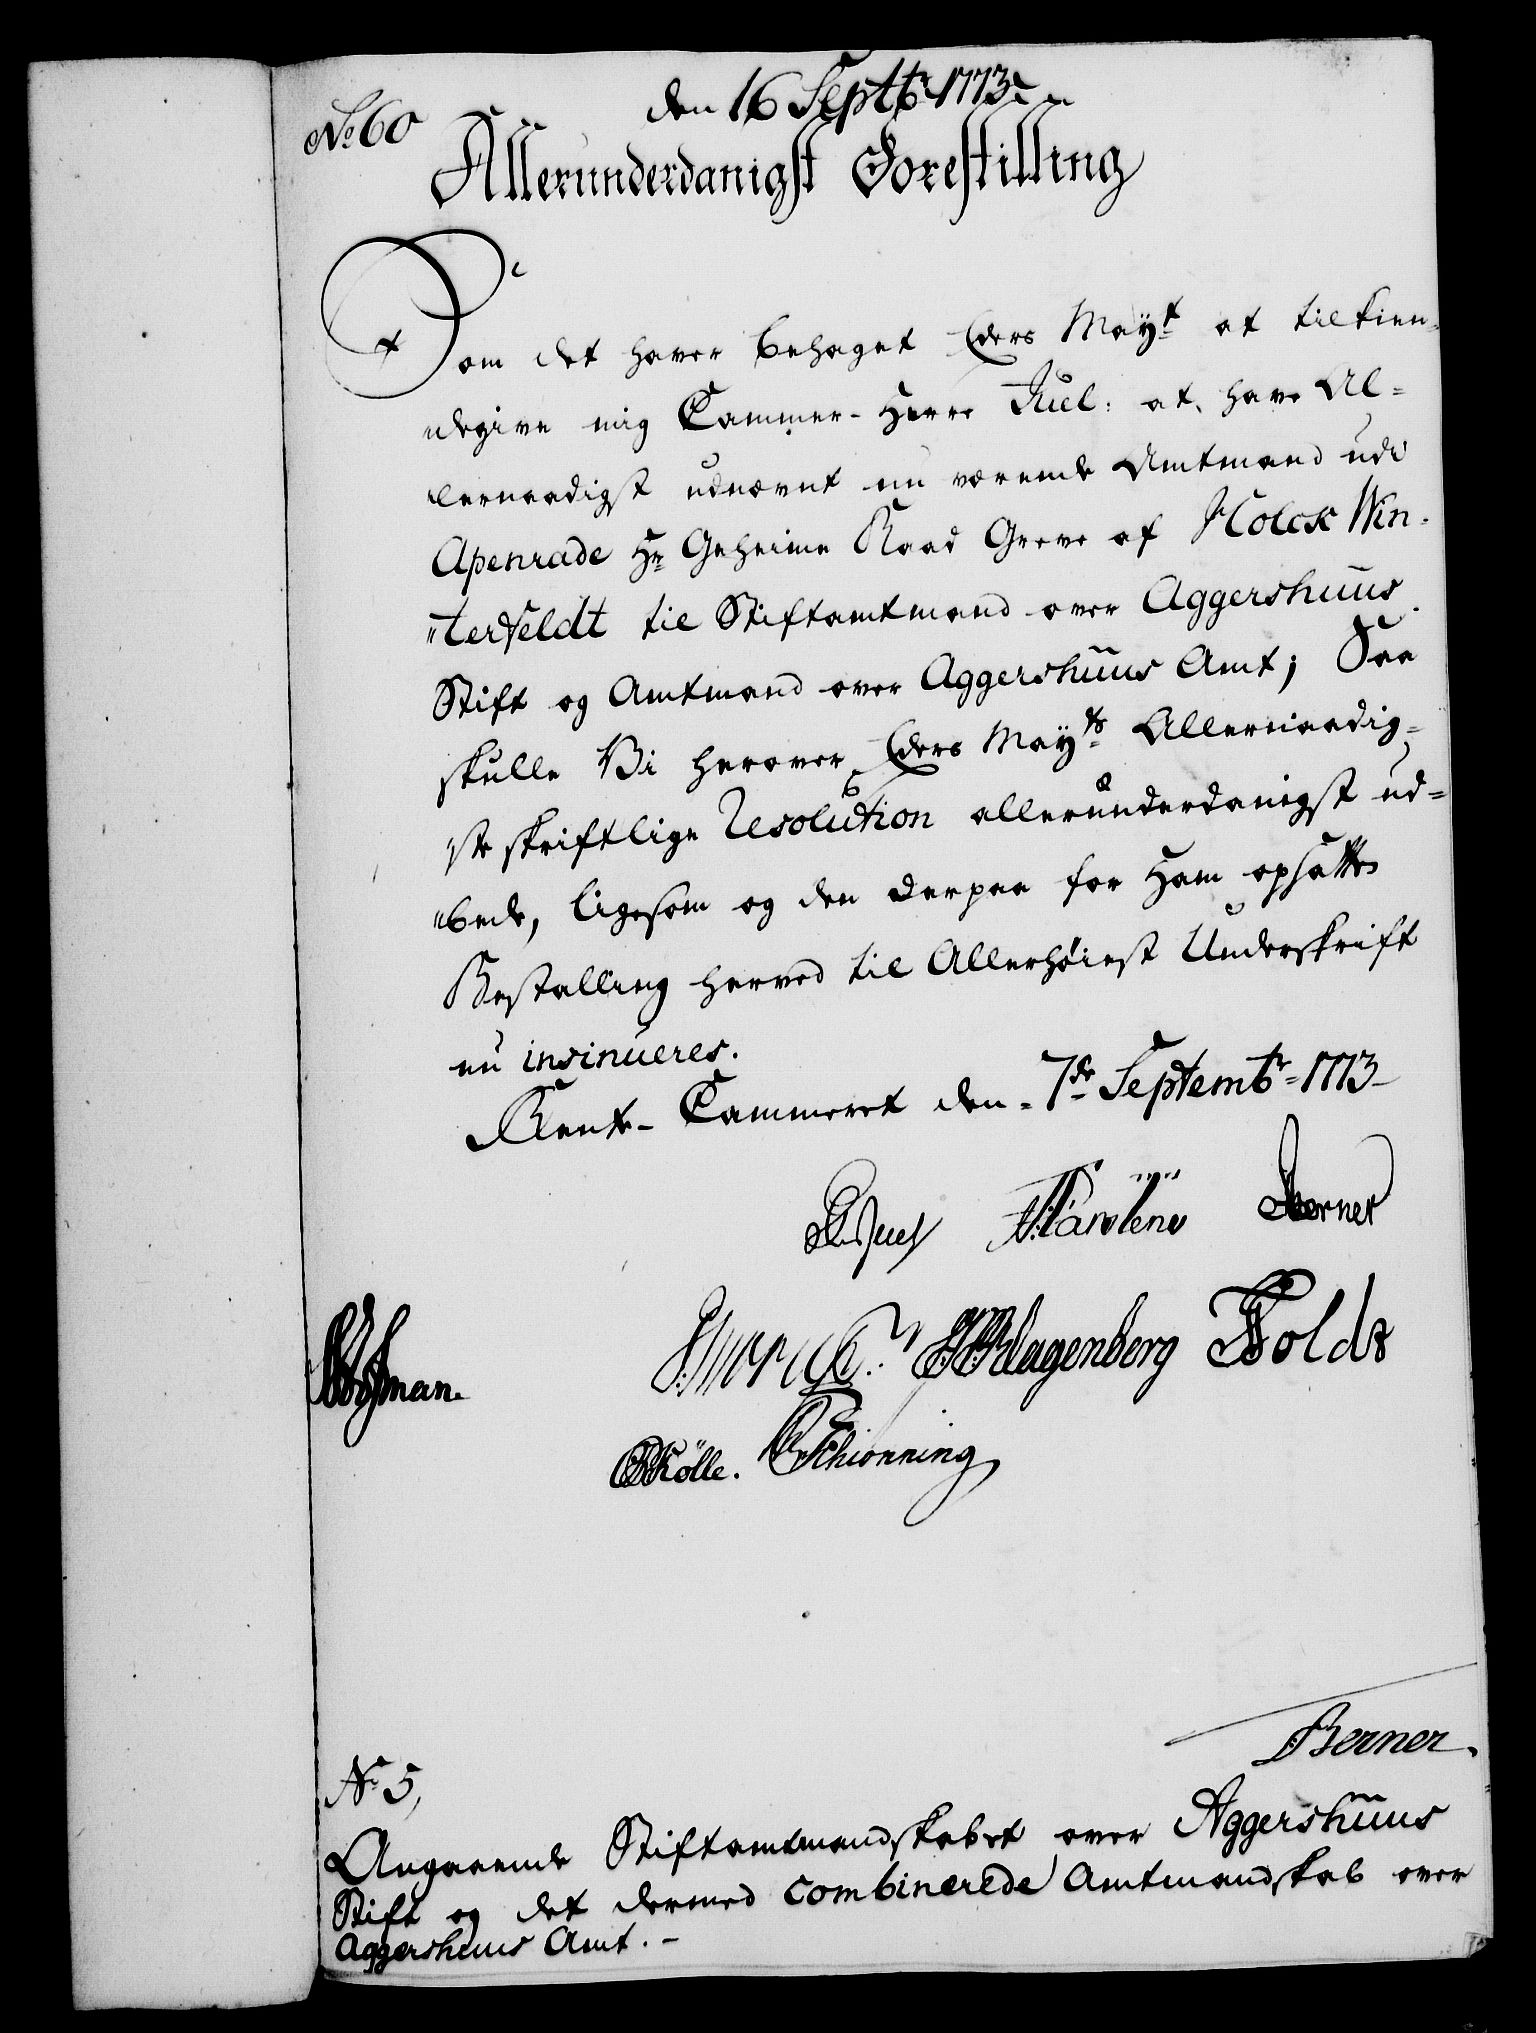 den 16 Septbr 1773.
No 60
Allerunderdanigst Forestilling
Som det haver behaget Eders Mayt at tilkien-
degive mig Cammer-Herre Juel: at have Al=
lernaadigst udnævnt nu værende Amtmand udi
Apenrade Hr Geheime Raad Greve af Holck Win-
"terfeldt til Stiftamtmand over Aggershuus
Stift og Amtmand over Aggershuus Amt; Saa
skulle Vi herover Eders Mayts Allernaadig=
ste skriftlige Resolution allerunderdanigst ud=
"bede, ligesom og den derpaa for Ham opsatte
Bestalling herved til Allerhøiest Underskrift
nu insinueres.
Rente-Cammeret den 7de Septembr 1773
Juel Berner
Klagenberg Holdt
Kölle. Schionning
Berner.
No 5,
Angaaende Stiftamtmandskabet over Aggershuus
Stift og det dermed combinerede Amtmandskab over
Aggershuus Amt. -